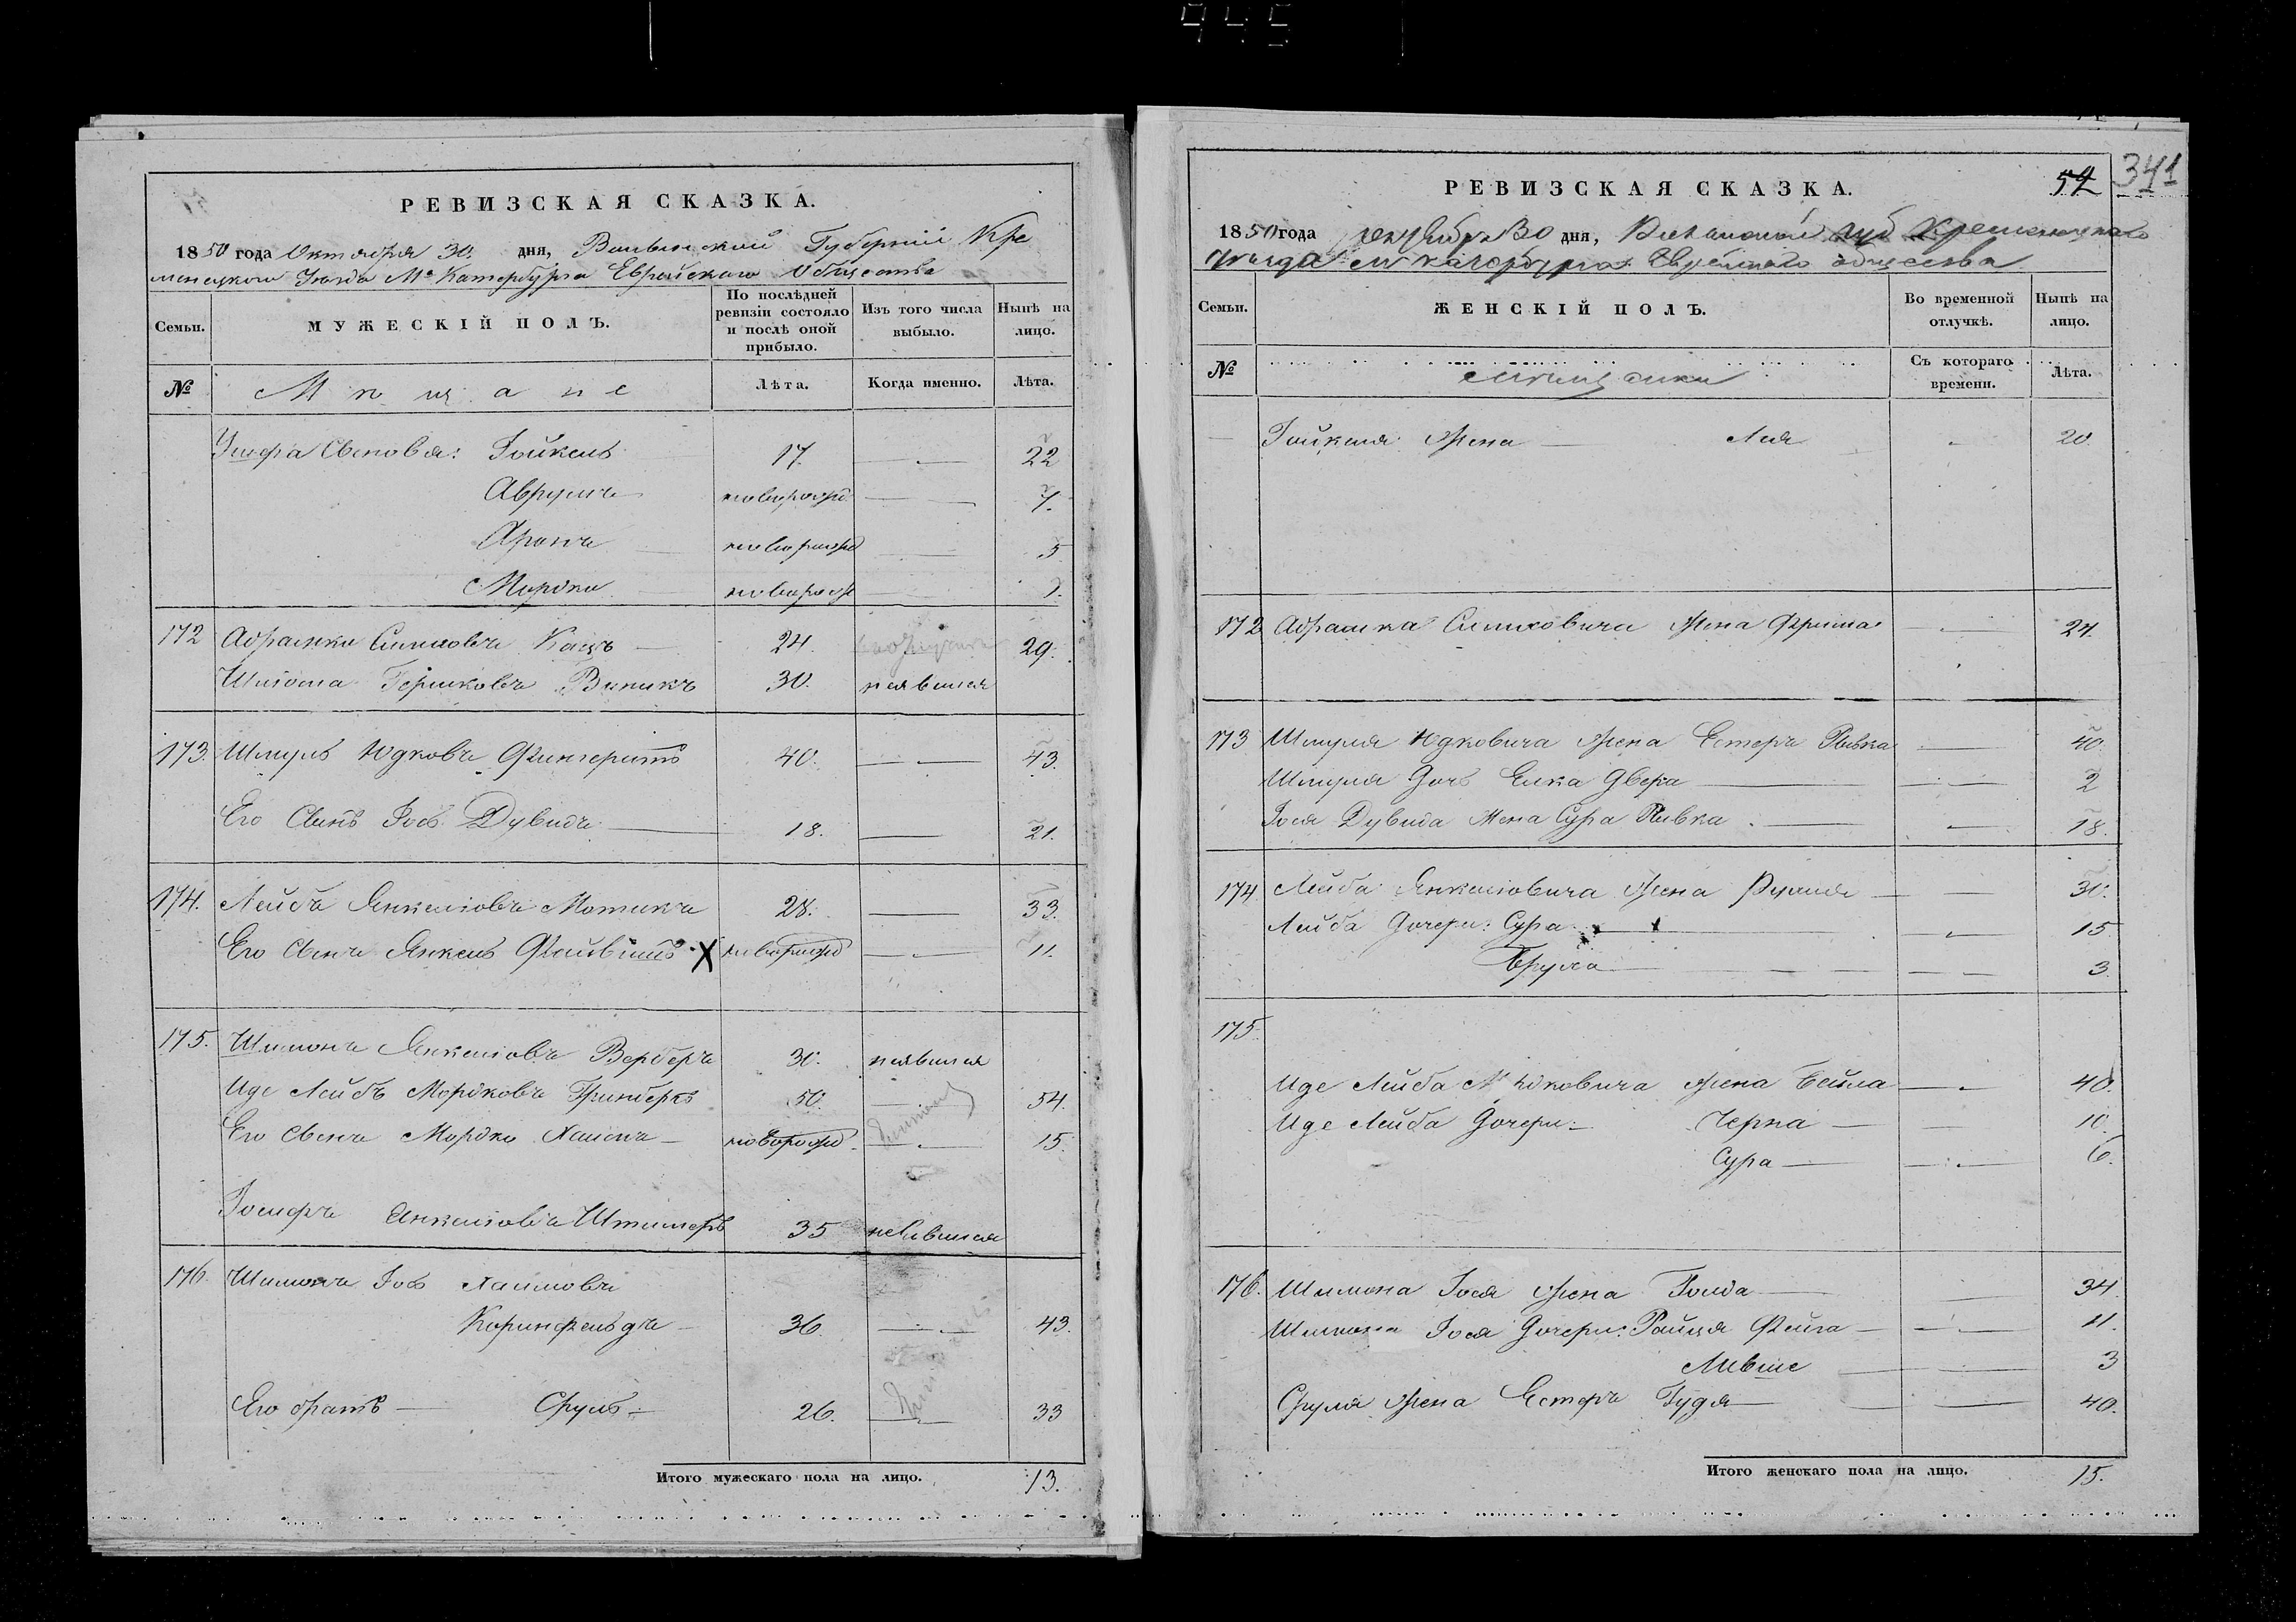 945
РЕВИЗСКАЯ СКАЗКА.
1850 года Октября 30. дня, Волынской Губерніи Кре
менецкого Уезда Мᵃ Катербурга Еврейскаго Общества
Семьи.
МУЖЕСКІЙ ПОЛЪ.
По послѣдней ревизіи состояло и послѣ оной прибыло.
Изъ того числа выбыло.
Нынѣ на лицо.
№ Мѣщане Лѣта. Когда именно. Лѣта.
Сыновья: Гойкель 17. 22
Аврумъ новорожд 7.
Аронъ новорожд 5
Мордко новорожд
172 Абрамко Кацъ 24. 29.
Шліома Гершковъ Виникъ 30. неявился
173. Шмуль Юдковъ 40. 43.
Его Сынъ Іось Дувидъ 18. 21.
174. Лейба Янкеліовъ 28. 33.
Его Сынъ Янкель X новорожд 11.
175. Шимонъ Янкеліовъ Верберъ 30. неявился
Иде Лейбъ Мордковъ Гринберхъ 50. 54.
Его Сынъ Мордко Хаимъ новорожд 15.
Іосифъ Янкеліовъ 35 неявился
176. Шимонъ Іось Хаимовъ
Коринфельдъ 36 43.
Его братъ Сруль 26. 33
Итого мужескаго пола на лицо. 13.
341
52
РЕВИЗСКАЯ СКАЗКА.
1850 года октября 30 дня, Волынской губ Кременецкаго
уезда Катербурга Еврейскаго общества
Семьи.
ЖЕНСКІЙ ПОЛЪ.
Во временной отлучкѣ.
Нынѣ на лицо.
№ мѣщанки Съ котораго времени. Лѣта.
Гойкеля Жена Лея 20.
172 Абрамка Жена Фрима 24.
173 Шмуля Юдковича Жена Естеръ Ривка 40.
Шмуля Дочь Елка Двера 2
Іося Дувида Жена Сура Ривка 18.
174. Лейба Янкеліовича Жена 30.
Лейба Дочери: Сура 15
Бруха 3
175.
Иде Лейба Жена Бейла 40.
Иде Лейба Дочери: Черна 10.
Сура 6.
176. Шимона Іося Жена Голда 34
Шимона Іося Дочери: Райця Фейга 11.
Ливше 3
Сруля Жена Естеръ Гудя 40.
Итого женскаго пола на лицо. 15.